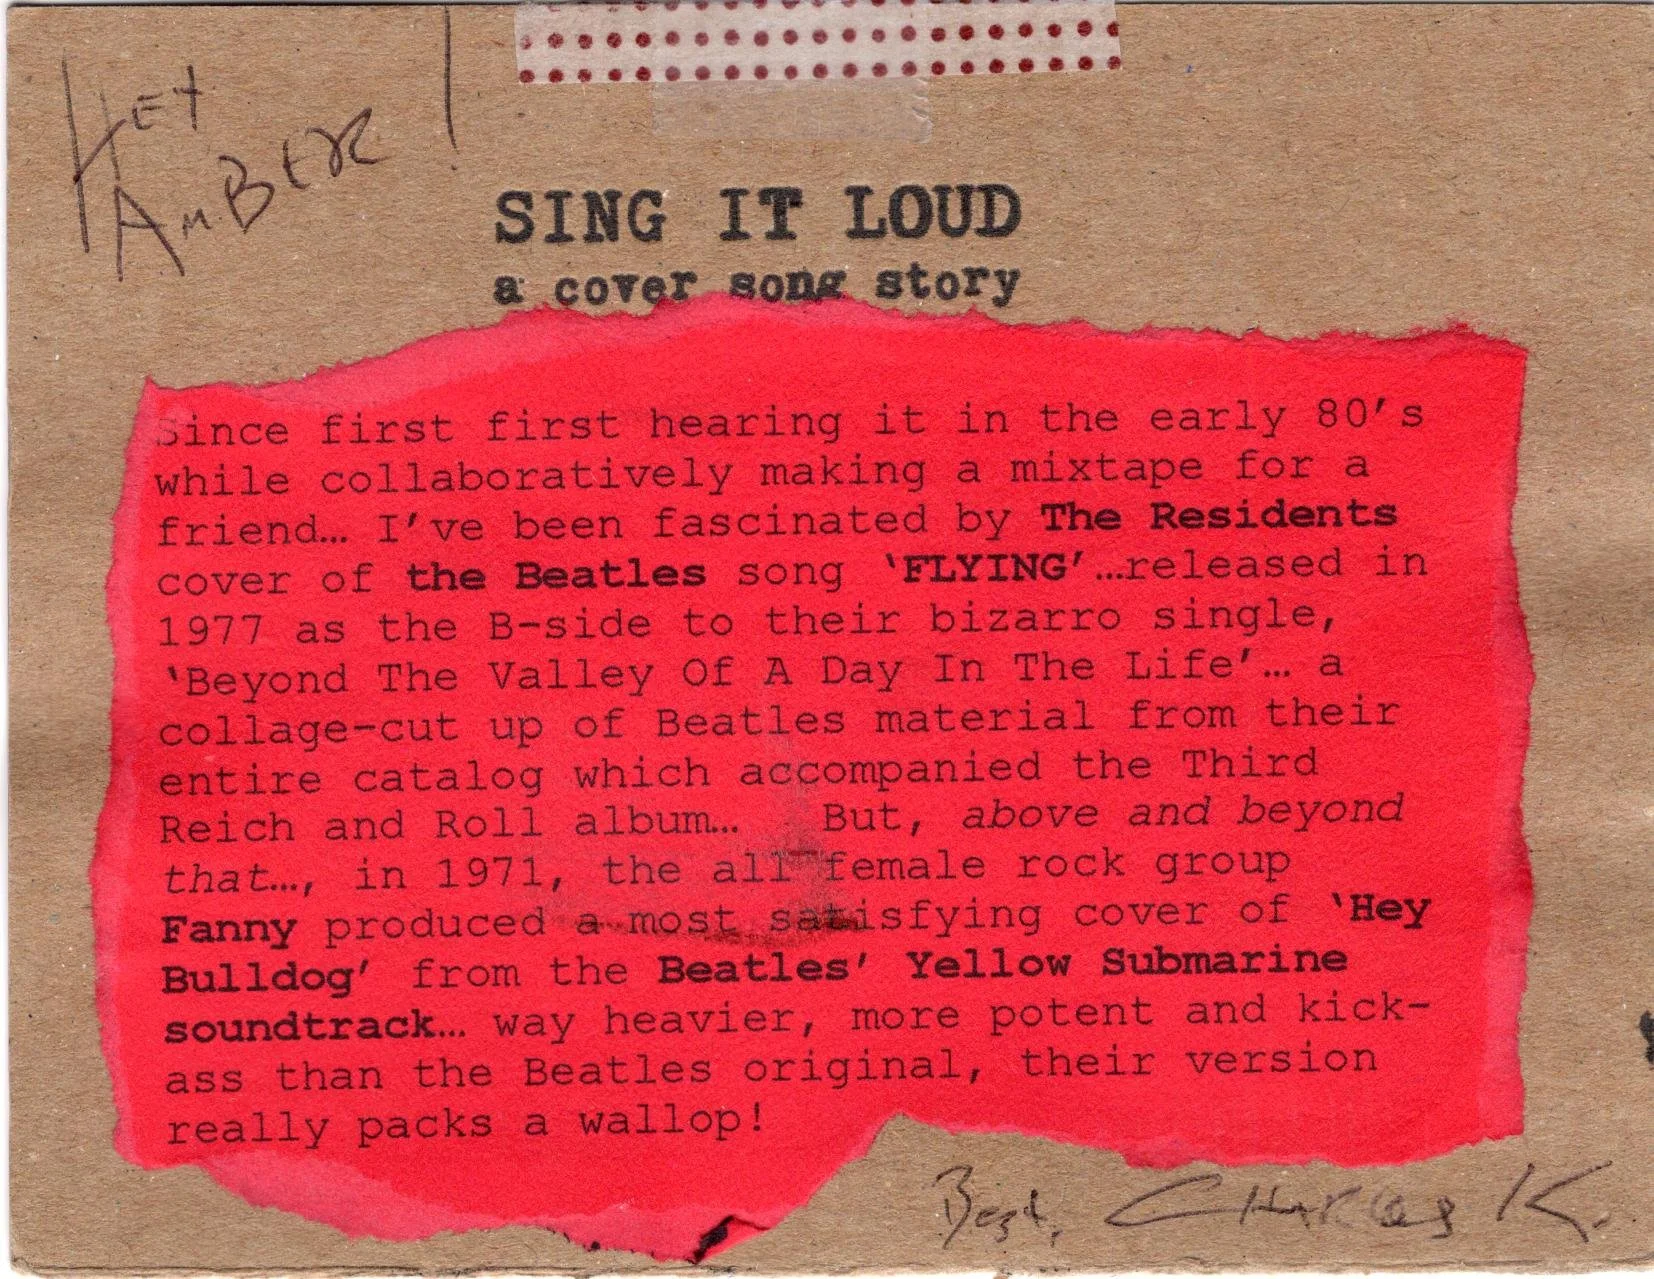 HEY
AMBER!
SING IT LOUD
a cover song story
Since first first hearing it in the early 80's
while collaboratively making a mixtape for a
friend… I've been fascinated by The Residents
cover of the Beatles song 'FLYING'…released in
1977 as the B-side to their bizarro single,
'Beyond The Valley Of A Day In The Life'… a
collage-cut up of Beatles material from their
entire catalog which accompanied the Third
Reich and Roll album… But, above and beyond
that…, in 1971, the all female rock group
Fanny produced a most satisfying cover of 'Hey
Bulldog' from the Beatles' Yellow Submarine
soundtrack… way heavier, more potent and kick-
ass than the Beatles original, their version
really packs a wallop!
Best, CHARLES K.